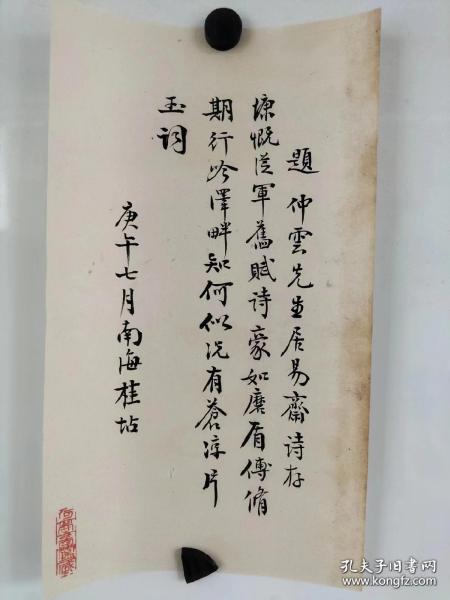 題 仲雲先生居易齋詩存
慷慨從軍舊賦詩豪如磨盾傅脩
期行吟澤畔知何似況有蒼涼片
玉詞
庚午七月南海桂坫
孔夫子旧书网
www.kongfz.com